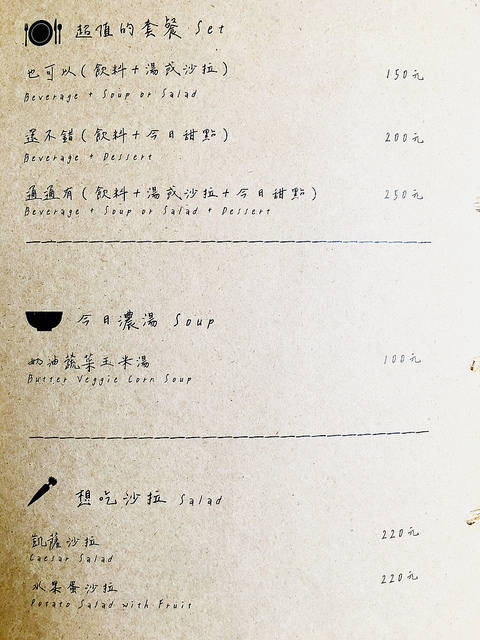 超值的套餐 Set
也可以(飲料+湯或沙拉) 150元
Beverage + Soup or Salad
還不錯(飲料+今日甜點) 200元
Beverage + Dessert
通通有(飲料+湯或沙拉+今日甜點) 250元
Beverage + Soup or Salad + Dessert
今日濃湯 Soup
奶油蔬菜玉米湯 100元
Butter Veggie Corn Soup
想吃沙拉 Salad
凱薩沙拉 220元
Caesar Salad
水果蛋沙拉 220元
Potato Salad with Fruit